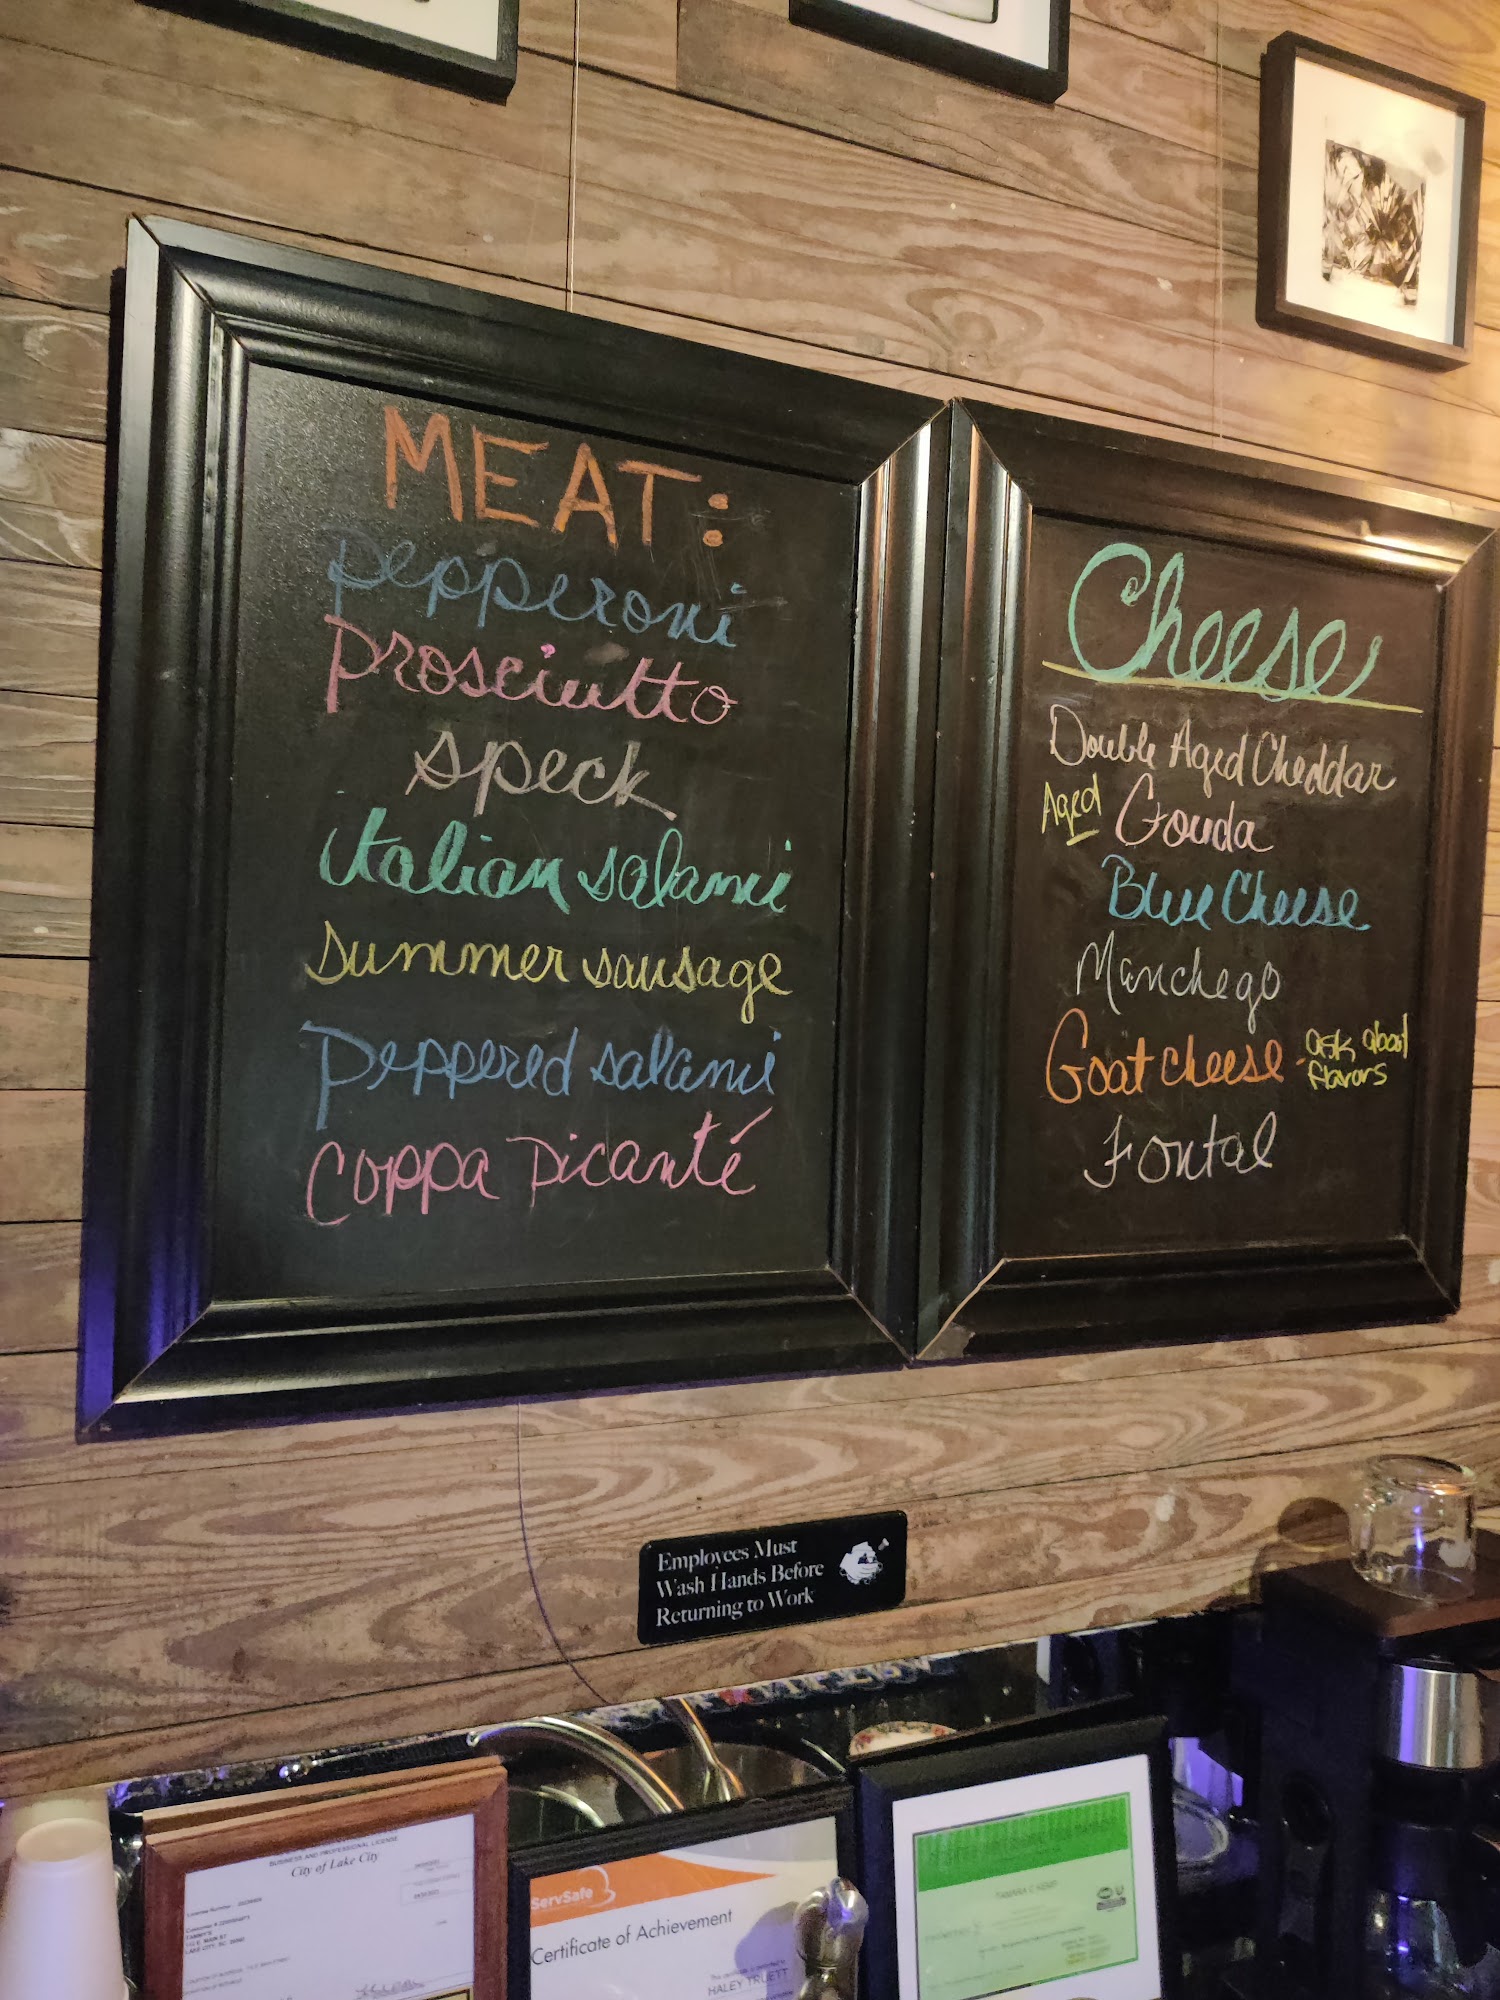 MEAT:
pepperoni
prosciutto
speck
italian salami
summer sausage
peppered salami
coppa picanté
Cheese
Double Aged Cheddar
Aged Gouda
Blue Cheese
Manchego
Goat cheese - ask about flavors
Fontal
Employees Must
Wash Hands Before
Returning to Work
BUSINESS AND PROFESSIONAL LICENSE
City of Lake City
ServSafe
Certificate of Achievement
HALEY TRUETT